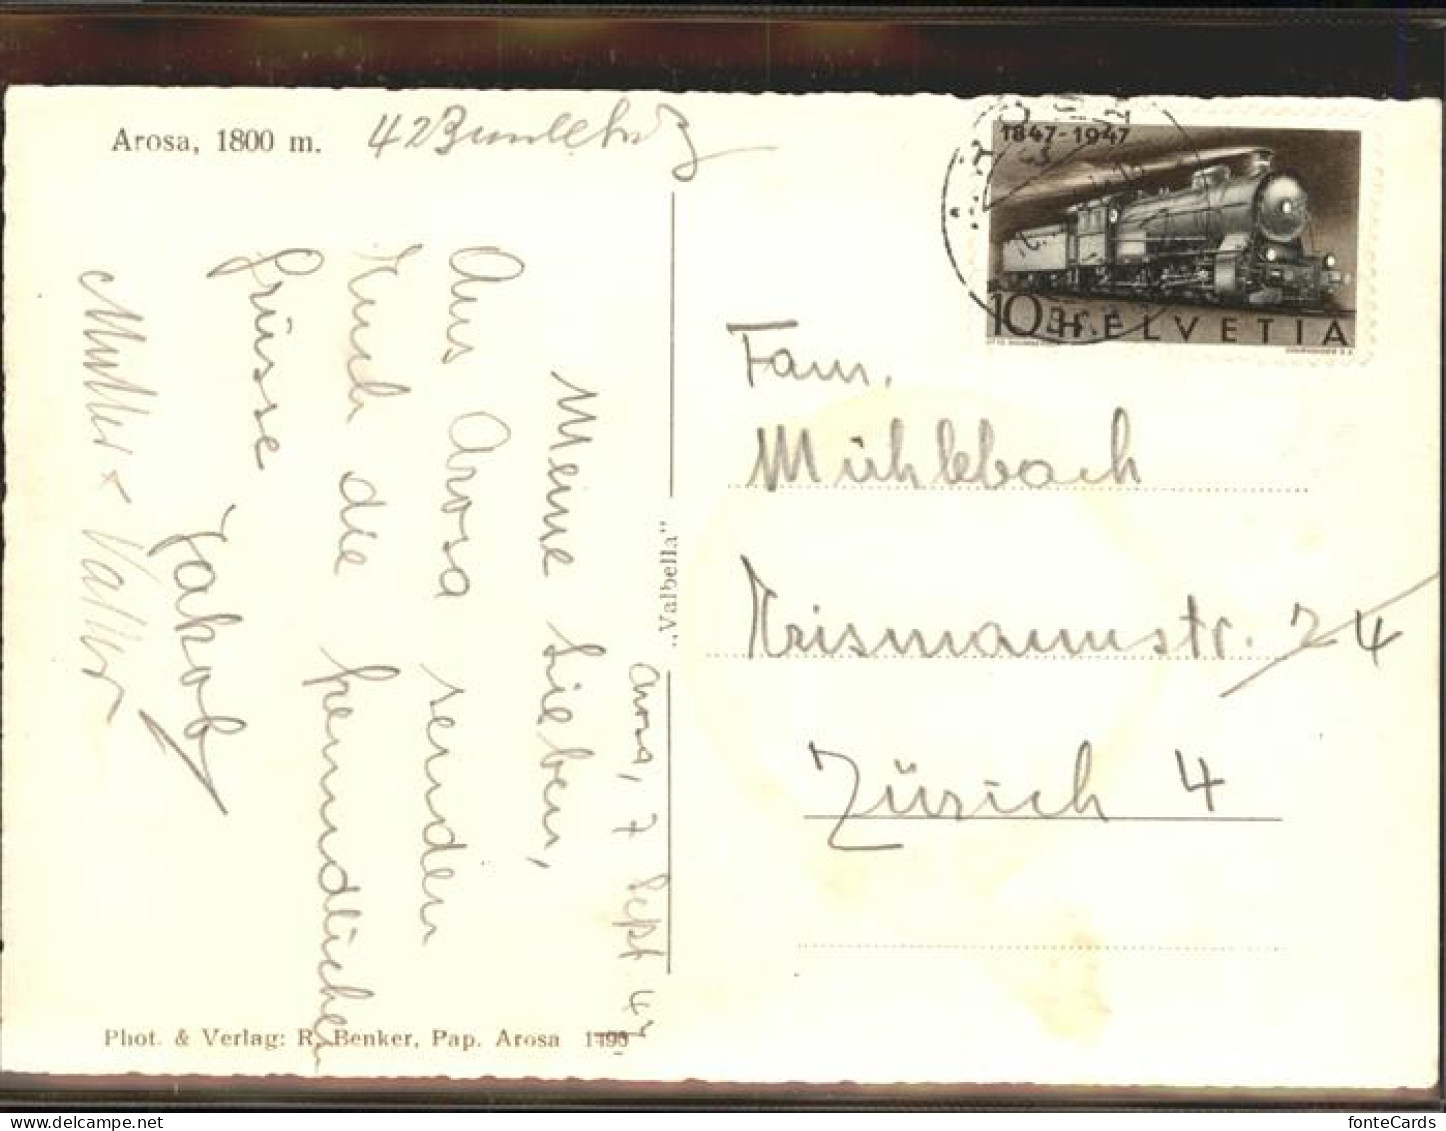 Arosa, 1800 m.
1847-1947
10 HELVETIA
Fam.
Mühlebach
Krismannstr. 24
Zürich 4
„Valbella"
Arosa, 7 Sept 47
Meine Lieben,
Aus Arosa senden
Euch die freundlichen
Grüsse
Jakob
Mutter + Vater
Phot. & Verlag: R. Benker, Pap. Arosa
fonteCards